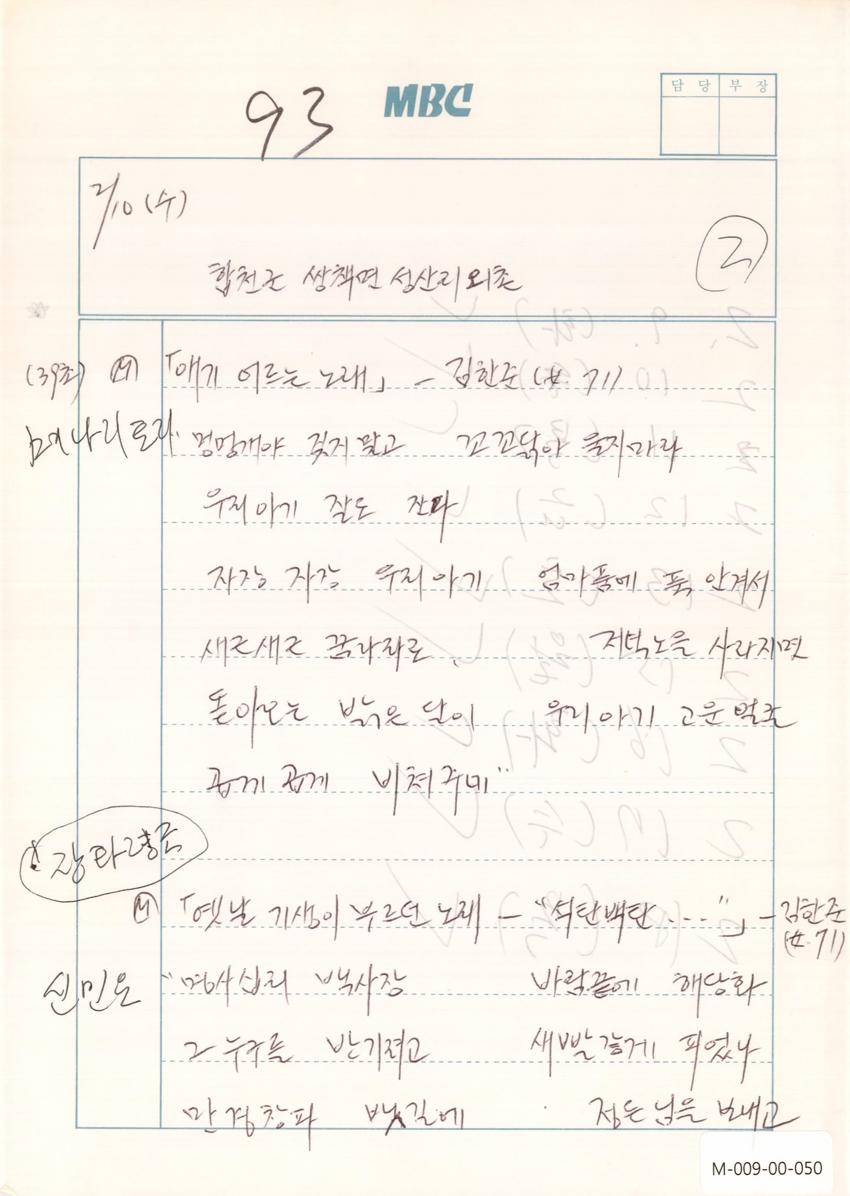 93
MBC
담 당 부 장
2/10 (수)
②
합천군 쌍책면 성산리 외촌
(39초) Ⓜ 「애기 어르는 노래」 - 김한준 (女 71)
메나리토리
멍멍개야 짖지말고 꼬꼬닭아 울지마라
우리아기 잘도 잔다
자장 자장 우리아기 엄마품에 푹 안겨서
새근새근 꿈나라로 저녁노을 사라지면
돋아오는 밝은 달이 우리아기 고운얼굴
곱게 곱게 비쳐주네"
장타령조
Ⓜ 「옛날 기생이 부르던 노래 - "석탄백탄 ...."」 - 김한준
(女. 71)
신민요
"명사십리 백사장 바람끝에 해당화
그 누구를 반기려고 새빨갛게 피었나
만경창파 뱃길에 정든님을 보내고
M-009-00-050